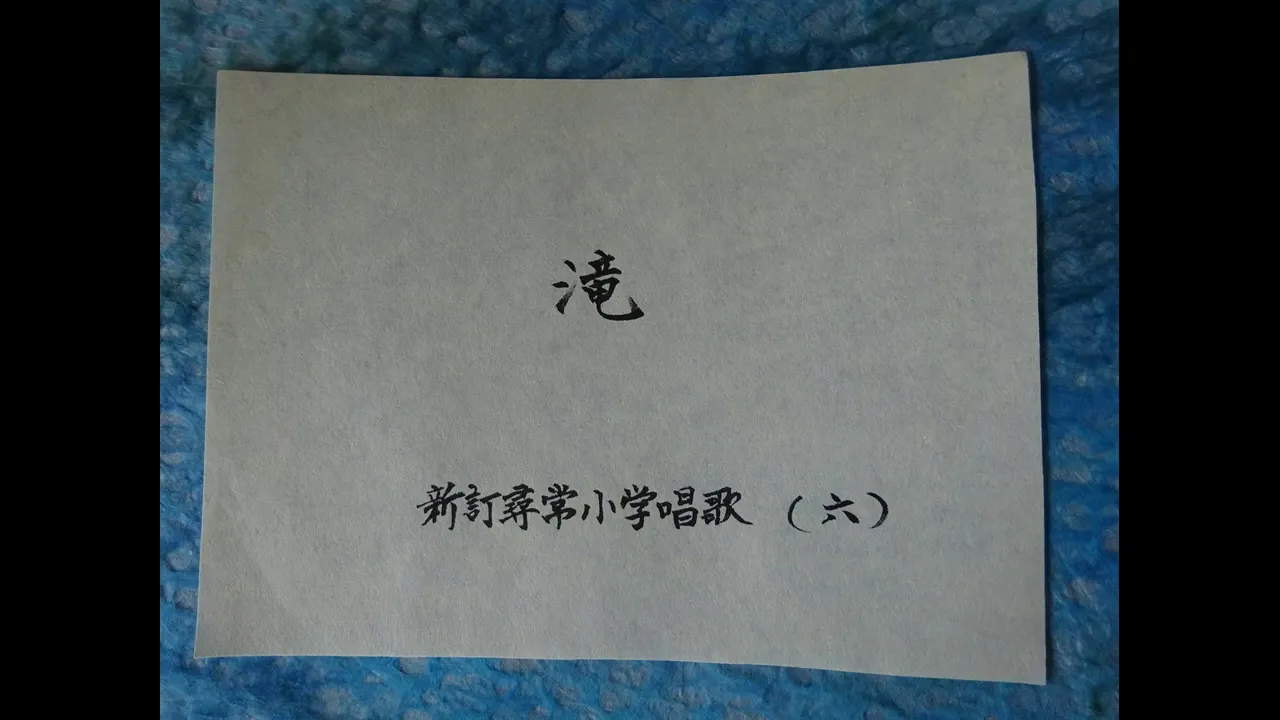 滝
新訂尋常小学唱歌 (六)